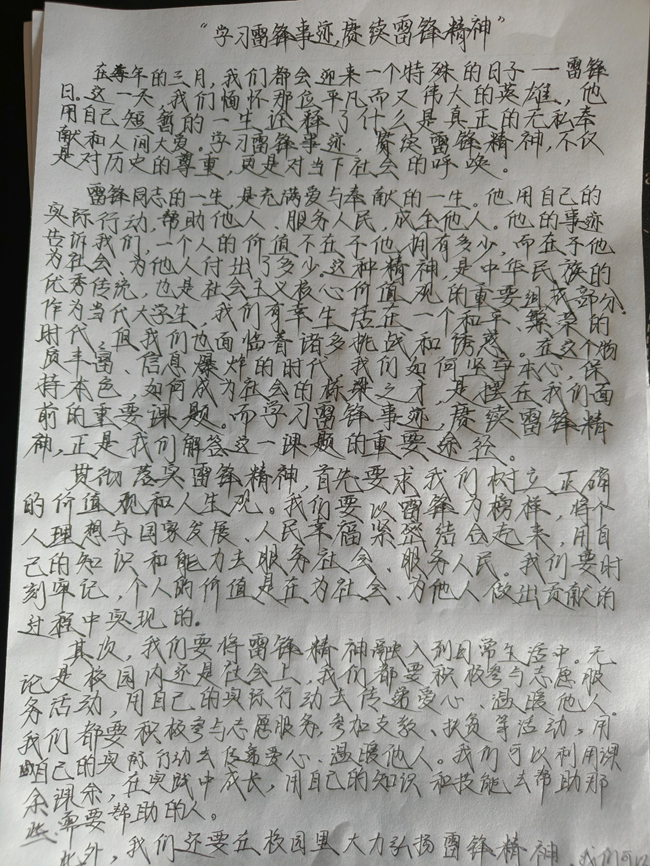 “学习雷锋事迹,赓续雷锋精神”
在每年的三月,我们都会迎来一个特殊的日子—雷锋
日。这一天,我们缅怀那位平凡而又伟大的英雄,他
用自己短暂的一生诠释了什么是真正的无私奉
献和人间大爱。学习雷锋事迹,赓续雷锋精神,不仅
是对历史的尊重,更是对当下社会的呼唤。
雷锋同志的一生,是充满爱与奉献的一生。他用自己的
实际行动,帮助他人、服务人民,成全他人。他的事迹
告诉我们,一个人的价值不在于他拥有多少,而在于他
为社会、为他人付出了多少。这种精神,是中华民族的
优秀传统,也是社会主义核心价值观的重要组成部分。
作为当代大学生,我们有幸生活在一个和平、繁荣的
时代,但我们也面临着诸多挑战和诱惑。在这个物
质丰富、信息爆炸的时代,我们如何坚守本心,保
持本色,如何成为社会的栋梁之才,是摆在我们面
前的重要课题。而学习雷锋事迹,赓续雷锋精
神,正是我们解答这一课题的重要途径。
贯彻落实雷锋精神,首先要求我们树立正确
的价值观和人生观。我们要以雷锋为榜样,将个
人理想与国家发展、人民幸福紧密结合起来,用自
己的知识和能力去服务社会、服务人民。我们要时
刻牢记,个人的价值是在为社会、为他人做出贡献的
过程中实现的。
其次,我们要将雷锋精神融入到日常生活中。无
论是校园内还是社会上,我们都要积极参与志愿服
务活动,用自己的实际行动去传递爱心、温暖他人。
我们都要积极参与志愿服务,参加支教、扶贫等活动,用
自己的实际行动去传递爱心、温暖他人。我们可以利用课
余课余,在实践中成长,用自己的知识和技能去帮助那
些需要帮助的人。
此外,我们还要在校园里大力弘扬雷锋精神